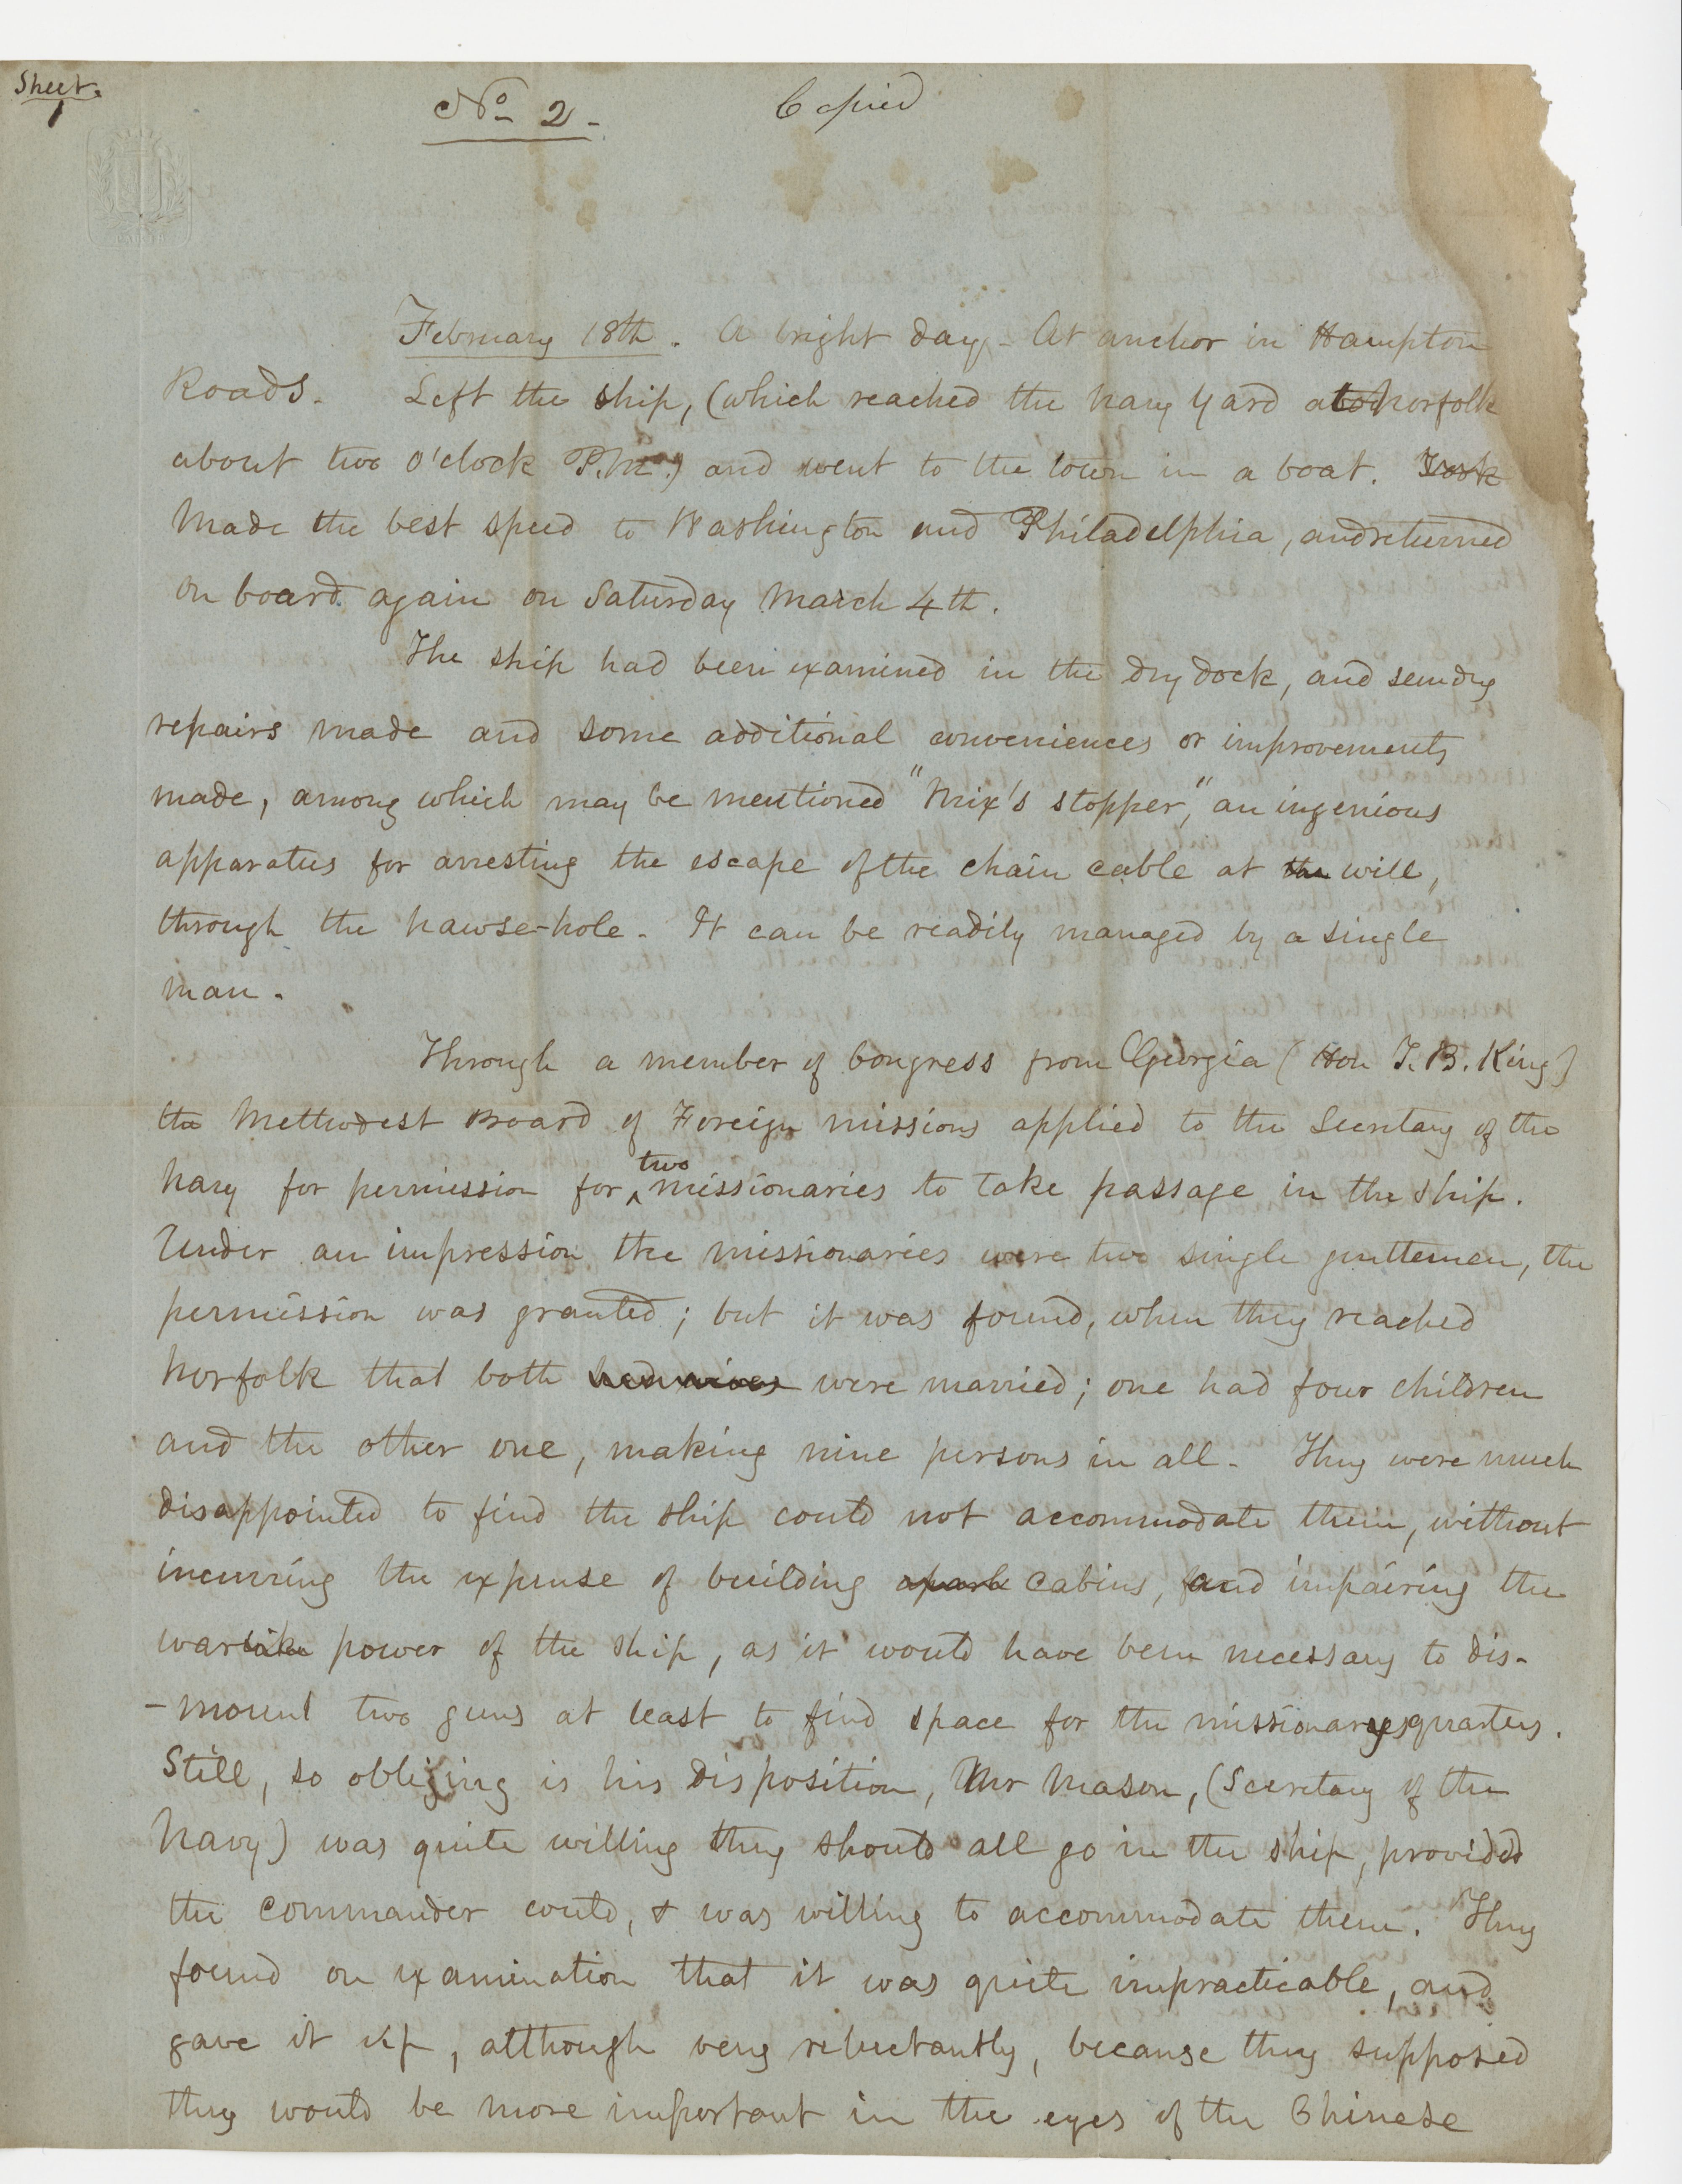 Sheet.
1
No 2 -
Copied
February 18th. A bright day - At anchor in Hampton
Roads. Left the ship, (which reached the Navy Yard at Norfolk
about two o'clock P.M.) and went to the town in a boat. Took
Made the best speed to Washington and Philadelphia, and returned
on board again on Saturday March 4th.
The ship had been examined in the dry dock, and sundry
repairs made and some additional conveniences or improvements
made, among which may be mentioned "Mix's stopper," an ingenious
apparatus for arresting the escape of the chain cable at the will,
through the hawse-hole. It can be readily managed by a single
man.
Through a member of Congress from Georgia (Hon T. B. King)
the Methodist Board of Foreign missions applied to the Secretary of the
two
Navy for permission for ^ missionaries to take passage in the ship.
Under an impression the missionaries were two single gentlemen, the
permission was granted; but it was found, when they reached
Norfolk that both had wives were married; one had four children
and the other one, making nine persons in all. They were much
disappointed to find the ship could not accommodate them, without
incurring the expense of building cabins, and impairing the
warlike power of the ship, as it would have been necessary to dis-
-mount two guns at least to find space for the missionarys quarters.
Still, so obliging is his disposition, Mr Mason, (Secretary of the
Navy) was quite willing they should all go in the ship, provided
the commander could, & was willing to accommodate them. They
found on examination that it was quite impracticable, and
gave it up, although very reluctantly, because they supposed
they would be more important in the eyes of the Chinese